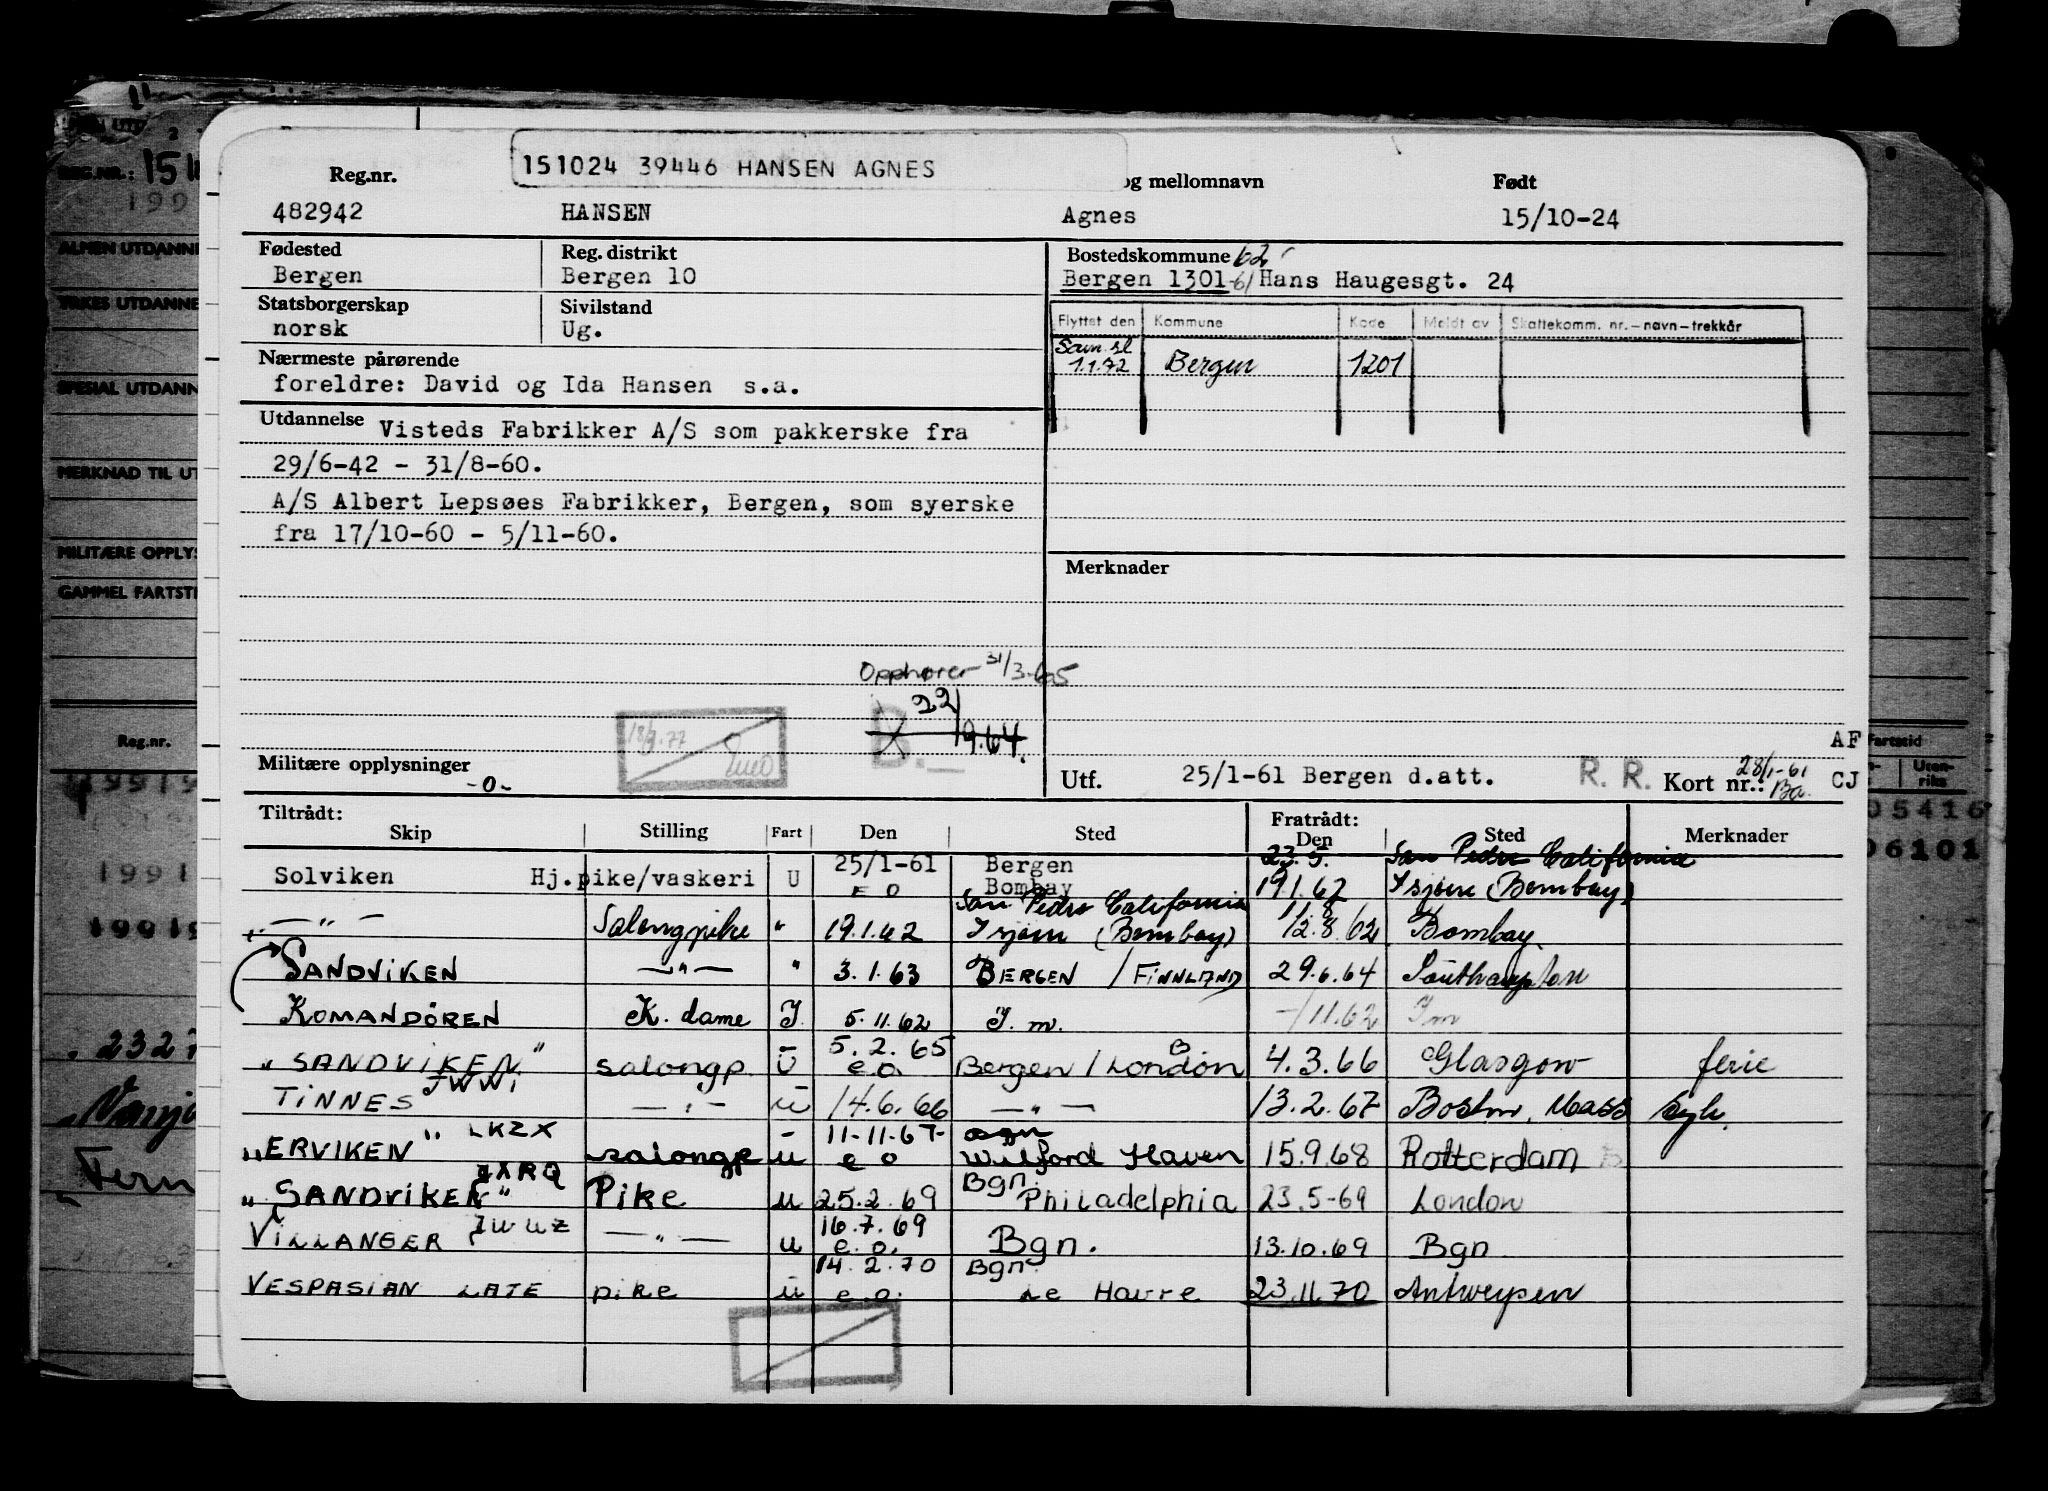 151024 39446 HANSEN AGNES
Reg.nr. og mellomnavn Født
482942 HANSEN Agnes 15/10-24
Fødested Reg. distrikt Bostedskommune 62
Bergen Bergen 10 Bergen 1301-61 Hans Haugesgt. 24
Statsborgerskap Sivilstand
norsk Ug.
Flyttet den Kommune Kode Meldt av Skattekomm. nr.-navn-trekkår
1.1.72 Bergen 1201
Nærmeste pårørende
foreldre: David og Ida Hansen s.a.
Utdannelse Visteds Fabrikker A/S som pakkerske fra
29/6-42 - 31/8-60.
A/S Albert Lepsøes Fabrikker, Bergen, som syerske
fra 17/10-60 - 5/11-60.
Merknader
Opphører 31/3-65
22/9.64.
B.
18/3.77
AF
Militære opplysninger
-0-
Utf. 25/1-61 Bergen d.att. R. R. Kort nr.: 28/1-61 Ba. CJ
Tiltrådt: Fratrådt:
Skip Stilling Fart Den Sted Den Sted Merknader
Solviken Hj.pike/vaskeri U 25/1-61 Bergen 23.5. San Pedro California
E O Bombay 19.1.62 Isjøen (Bombay)
San Pedro California
-"- Salongpike " 19.1.62 Isjøen (Bombay) 12.8.62 Bombay
SANDVIKEN -"- " 3.1.63 BERGEN / FINNLAND 29.6.64 Southampton
KOMANDÖREN K. dame I. 5.11.62 I. m. -/11.62 Im
"SANDVIKEN" salongp. U 5.2.65 e.o. Bergen / London 4.3.66 Glasgow ferie
TINNES JWWI -"- U 14.6.66 -"- 13.2.67 Boston, Mass Syk.
"ERVIKEN" LKZX salongp u 11-11-67 e o Bgn Wilford Haven 15.9.68 Rotterdam
"SANDVIKEN" Pike u 25.2.69 Bgn. Philadelphia 23.5-69 London
VILLANGER -"- u 16.7.69 e.o. Bgn. 13.10.69 Bgn
VESPASIAN LATE pike u 14.2.70 e.o. Bgn. Le Havre 23.11.70 Antwerpen
REG.NR.: 151
ALMEN UTDANNE
YRKES UTDANNE
SPESIAL UTDANN
MERKNAD TIL UT
MILITÆRE OPPLYS
GAMMEL FARTSTI
Reg.nr.
19919
1991
19919
2327
Fern
Fartstid
Uten-
riks
05416
06101